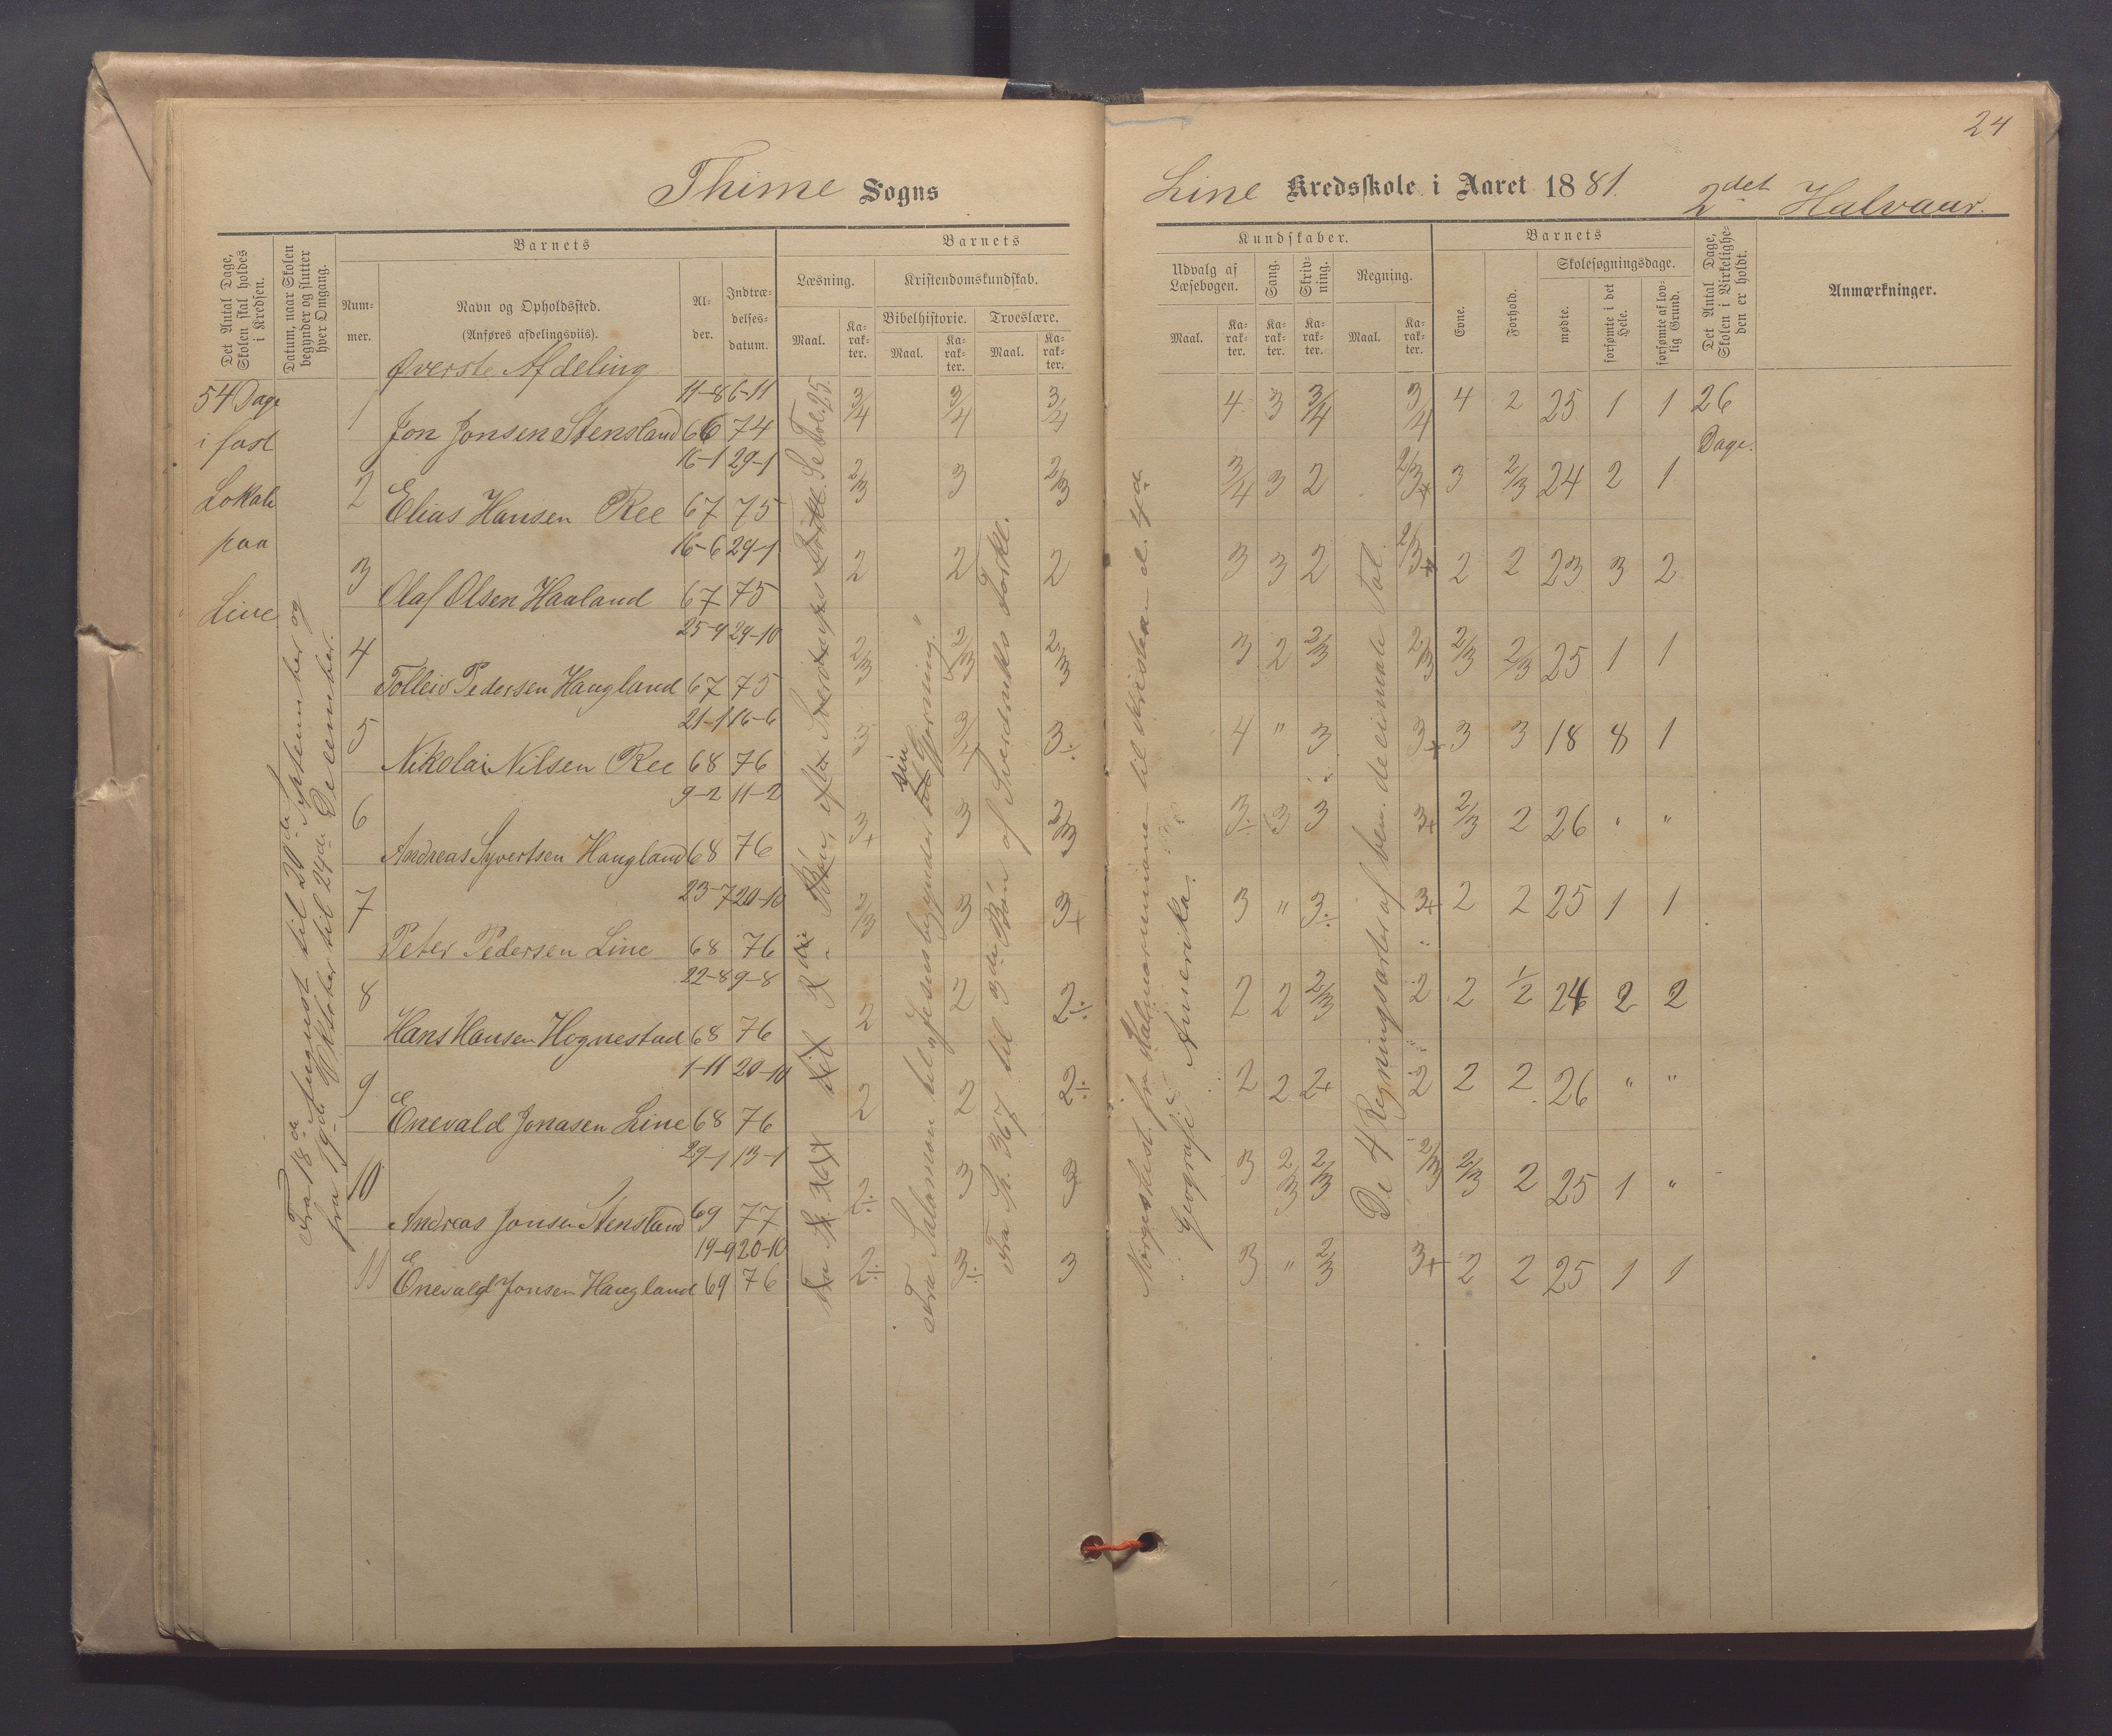 24
Thime Sogns
Line Kredsskole i Aaret 1881. 2det Halvaar.
Det Antal Dage, Skolen skal holdes i Kredsen.
Datum, naar Skolen begynder og slutter hver Omgang.
Barnets
Num-
mer.
Navn og Opholdssted.
(Anføres afdelingsviis).
Al-
der.
Indtræ-
delses-
datum.
Barnets
Læsning.
Kristendomskundskab.
Bibelhistorie.
Troeslære.
Maal.
Ka-
rak-
ter.
Maal.
Ka-
rak-
ter.
Maal.
Ka-
rak-
ter.
Kundskaber.
Udvalg af
Læsebogen.
Sang.
Skriv-
ning.
Regning.
Maal.
Ka-
rak-
ter.
Ka-
rak-
ter.
Ka-
rak-
ter.
Maal.
Ka-
rak-
ter.
Barnets
Evne.
Forhold.
Skolesøgningsdage.
mødte.
forsømte i det Hele.
forsømte af lov-
lig Grund.
Det Antal Dage, Skolen i Virkelighe-
den er holdt.
Anmærkninger.
Øverste Afdeling
54 Dage
i fast
Lokale
paa
Line
Fra 18de August til 20de September og
fra 19de Oktober til 24de December.
11-8 6-11
1 Jon Jonsen Stensland 66 74 3/4 3/4 3/4 4 3 3/4 3/4 4 2 25 1 1 26 Dage.
16-1 29-1
2 Elias Hansen Ree 67 75 2/3 3 2/3 3/4 3 2 2/3+ 3 2/3 24 2 1
16-6 29-1
3 Olaf Olsen Haaland 67 75 2 2 2 3 3 2 2/3+ 2 2 23 3 2
25-9 29-10
4 Tolleiv Pedersen Haugland 67 75 2/3 2/3 2/3 3 2 2/3 2/3 2/3 2/3 25 1 1
21-1 16-6
5 Nikolai Nilsen Ree 68 76 3 3/4 3÷ 4 " 3 3+ 3 3 18 8 1
9-2 11-2
6 Andreas Syvertsen Haugland 68 76 3+ 3 2/3 3÷ 3 3 3+ 2/3 2 26 " "
23-7 20-10
7 Peter Pedersen Line 68 76 2/3 3 3+ 3 " 3÷ 3+ 2 2 25 1 1
22-8 9-8
8 Hans Hansen Hognestad 68 76 2 2 2÷ 2 2 2/3 2 2 1/2 24 2 2
1-11 20-10
9 Enevald Jonasen Line 68 76 2 2 2÷ 2 2 2+ 2 2 2 26 " "
29-1 13-1
10 Andreas Jonsen Stensland 69 77 2÷ 3 3 3 2/3 2/3 2/3 2/3 2 25 1 "
19-9 20-10
11 Enevald Jonsen Haugland 69 76 2÷ 3÷ 3 3 " 2/3 3+ 2 2 25 1 1
Fra Salomon til "Jesus begynder sin Gjerning."
Fra Sp. 367 til 3die Bøn af Sverdrups Forkl.
Norgeshist. fra Kalmarunionen til Kristian d. 4de
Geografi: Amerika.
De 4 Regningsarter af ben. decimale Tal.